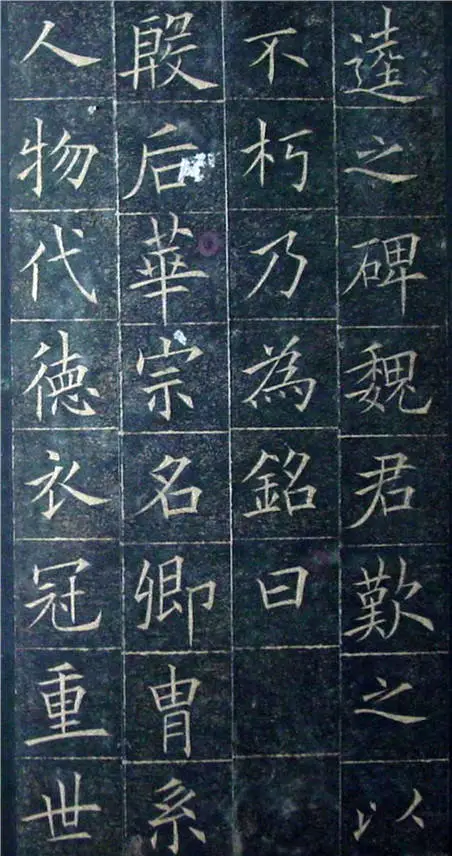 逵之碑魏君歎之以
不朽乃為銘曰
殷后華宗名卿胄系
人物代徳衣冠重世